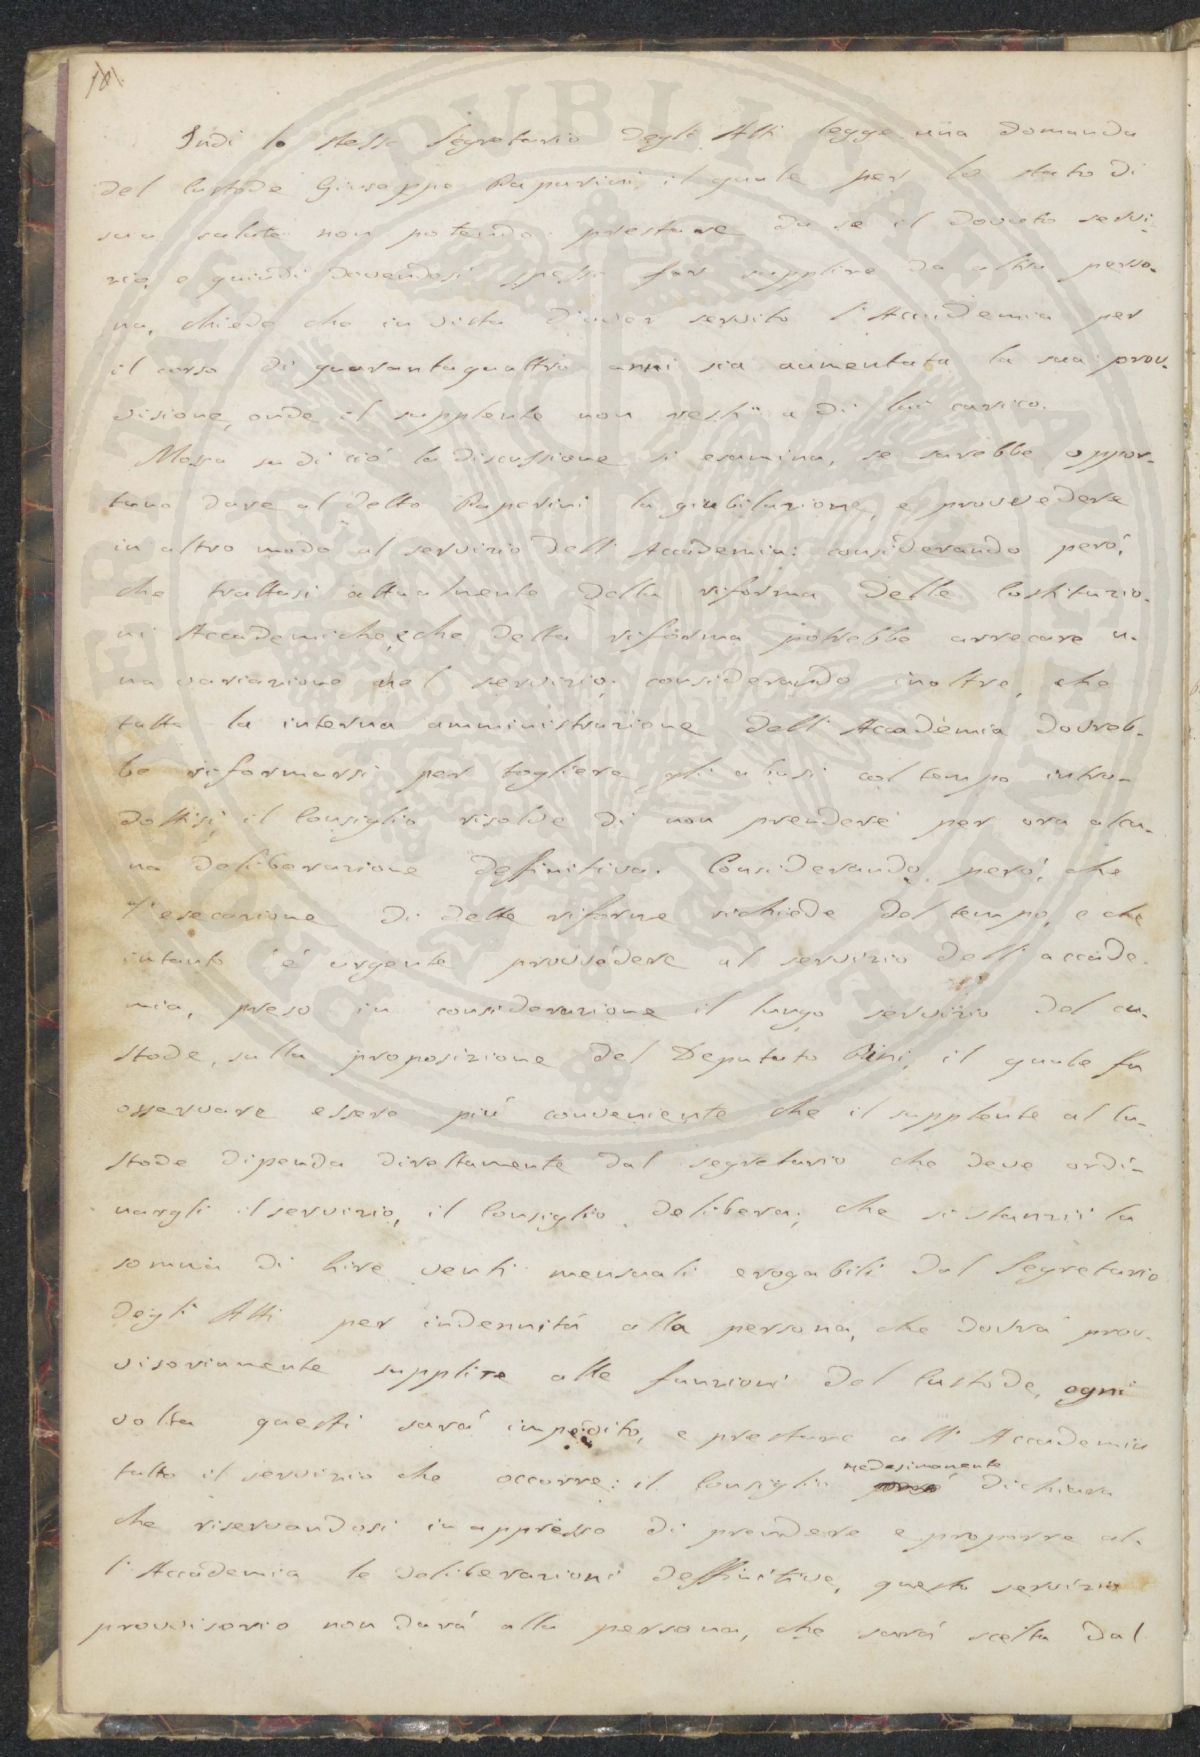 Indi lo stesso Segretario degli Atti legge una domanda
del Custode Giuseppe Paperini il quale per lo stato di
sua salute non potendo prestare da se il dovuto servi-
zio, e quindi dovendosi spesso far supplire da altra perso-
na, chiede che in vista d'aver servito l'Accademia per
il corso di quarantaquattro anni sia aumentata la sua prov-
visione, onde il supplente non resti a di lui carico.
Mossa su di ciò la discussione si esamina, se sarebbe oppor-
tuno dare al detto Paperini la giubilazione, e provvedere
in altro modo al servizio dell'Accademia: considerando però,
che trattasi attualmente della riforma delle Costituzio-
ni Accademiche, e che detta riforma potrebbe arrecare u-
na variazione nel servizio; considerando inoltre, che
tutta la interna amministrazione dell'Accademia dovreb-
be riformarsi per togliere gli abusi col tempo intro-
dottisi, il Consiglio risolve di non prendere per ora alcu-
na deliberazione deffinitiva. Considerando però, che
l'esecuzione di dette riforme richiede del tempo, e che
intanto è urgente provvedere al servizio dell'accade-
mia, preso in considerazione il lungo servizio del cu-
stode, sulla proposizione del Deputato Pini, il quale fa
osservare essere più conveniente che il supplente al Cu-
stode dipenda direttamente dal segretario che deve ordi-
nargli il servizio, il Consiglio delibera; che si stanzii la
somma di lire venti mensuali erogabili dal Segretario
degli Atti per indennità alla persona, che dovrà prov-
visoriamente supplire alle funzioni del Custode, ogni
volta questi sarà impedito, e prestare all'Accademia
tutto il servizio che occorre: il Consiglio medesimamente dichiara
che riservandosi in appresso di prendere e proporre al-
l'Accademia le deliberazioni deffinitive, questo servizio
provvisorio non darà alla persona, che sarà scelta dal